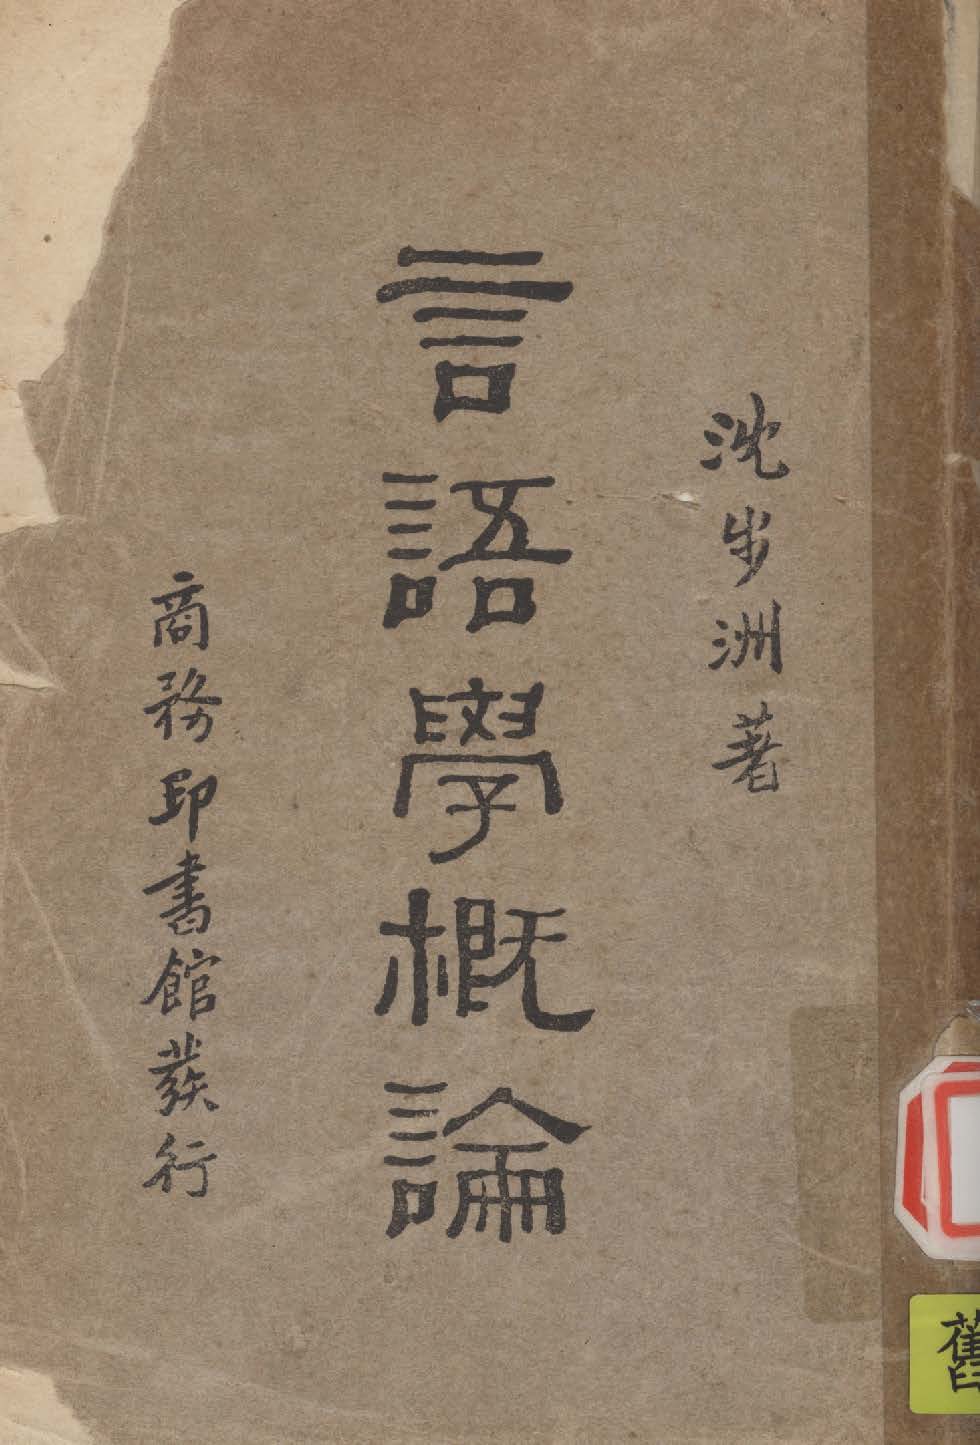 沈步洲著
言語學概論
商務印書館發行
舊